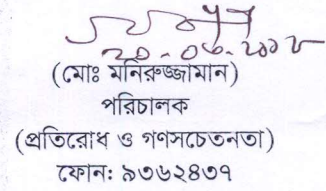 ২০-০৬-২০১৮
(মোঃ মনিরুজ্জামান)
পরিচালক
(প্রতিরোধ ও গণসচেতনতা)
ফোন: ৯৩৬২৪৩৭